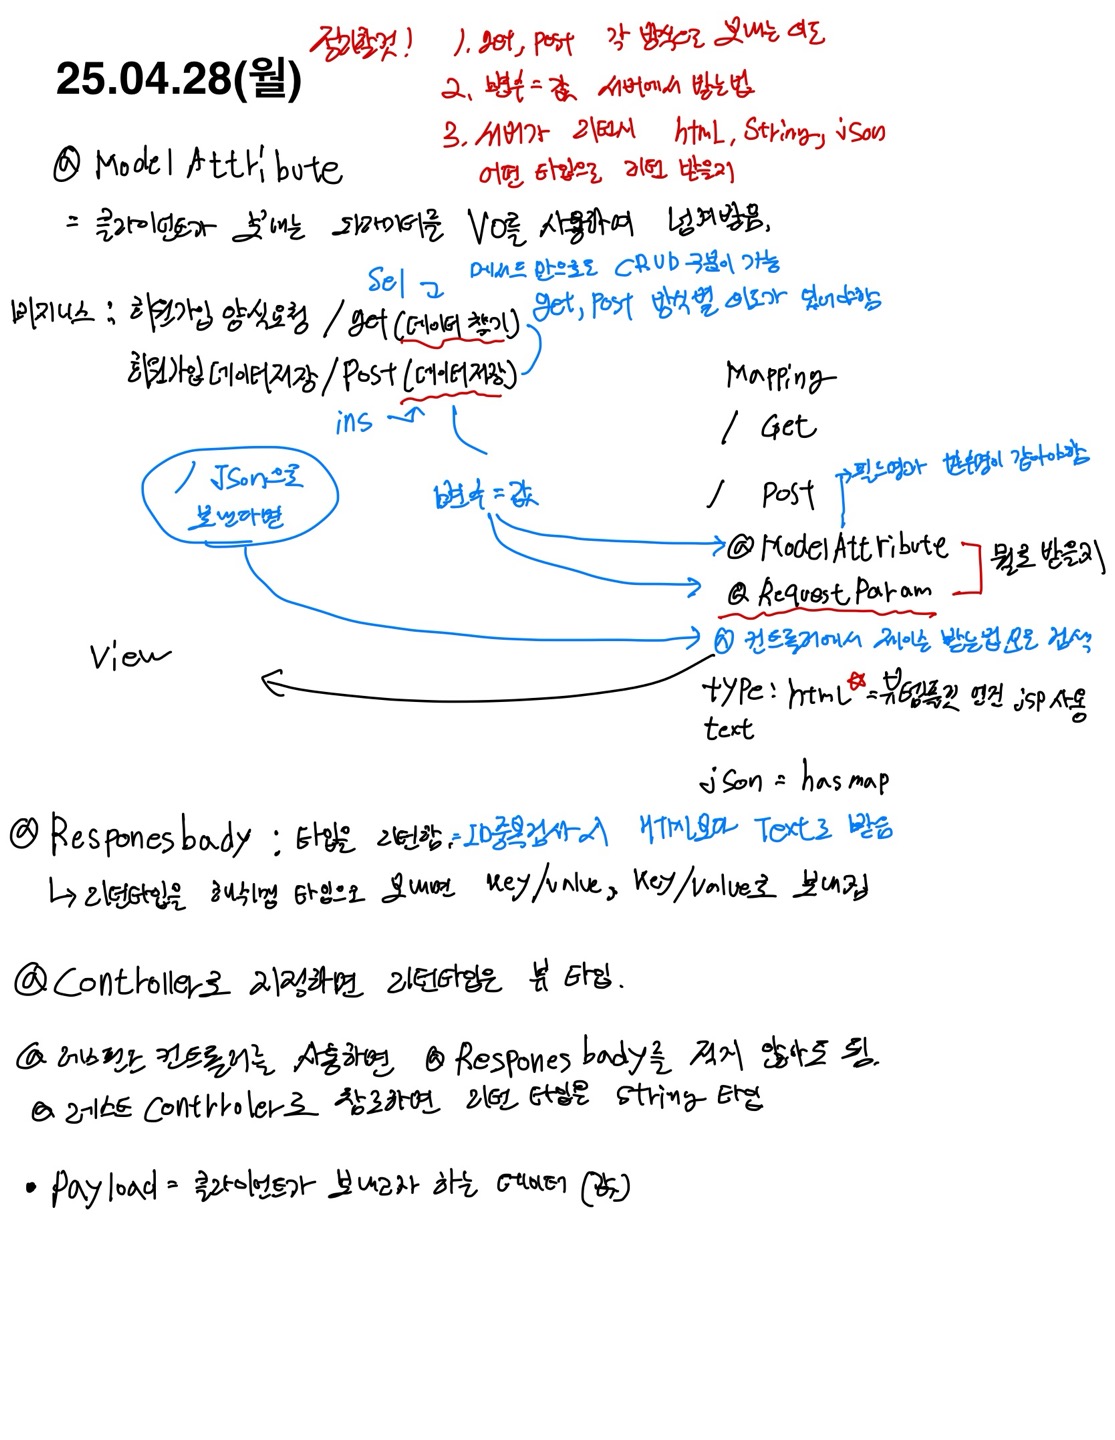 정리할것! 1. get, post 각 방식으로 보내는 의도
25.04.28(월)
2. 변수=값 서버에서 받는법
3. 서버가 리턴시 html, String, json
어떤 타입으로 리턴 받을지
@ Model Attribute
= 클라이언트가 보내는 파라미터를 VO를 사용하여 넘겨받음.
Sel
메서드 만으로도 CRUD 구분이 가능
get, Post 방식별 의도가 있어야함
비지니스 : 회원가입 양식요청 / get (데이터 찾기)
회원가입 데이터저장 / Post (데이터저장)
ins
Mapping
/ Get
/ JSon으로
보낸다면
변수=값
/ Post
→필드명과 변수명이 같아야함
@ ModelAttribute
@ RequestParam
뭘로 받을지
@ 컨트롤러에서 제이슨 받는법 으로 검색
View
type : html ☆ = 뷰템플릿 엔진 jsp 사용
text
json = hasmap
@ Responesbady : 타입을 리턴함. = ID중복검사 시 Text로 받음
↳ 리턴타입을 해쉬맵 타입으로 보내면 key/value, key/value로 보내짐
@ Controller로 지정하면 리턴타입은 뷰 타입.
@ 레스펀드 컨트롤러를 사용하면 @ Respones bady를 적지 않아도 됨.
@ 레스트 Contrroler로 참조하면 리턴 타입은 String 타입
• Payload = 클라이언트가 보내고자 하는 데이터 (값)